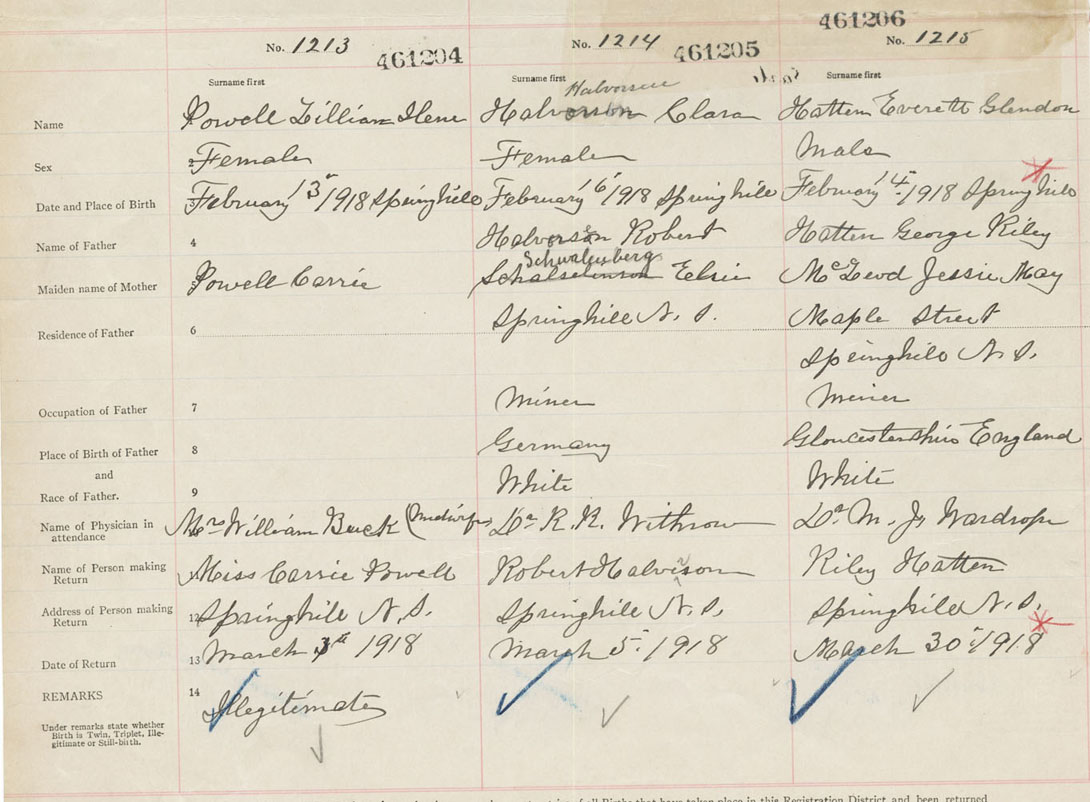 No. 1213 461204 No. 1214 461205 461206 No. 1215
Surname first Surname first Surname first
Halvorsen
Name Powell Lillian Ilene Halvorson Clara Hatten Everett Glendon
Sex 2 Female Female Male
Date and Place of Birth 3 February 13" 1918 Springhill February 16" 1918 Springhill February 14" 1918 Springhill
Name of Father 4 Halvorson Robert Hatten George Riley
Schwalenberg
Maiden name of Mother 5 Powell Carrie Elsie McLeod Jessie May
Residence of Father 6 Springhill N. S. Maple Street
Springhill N. S.
Occupation of Father 7 Miner Miner
Place of Birth of Father 8 Germany Gloucestershire England
and
Race of Father. 9 White White
Name of Physician in attendance Mrs William Buck (midwife) Dr R. R. Withrow Dr M. J. Wardrope
Name of Person making Return Miss Carrie Powell Robert Halvison Riley Hatten
Address of Person making Return 12 Springhill N. S. Springhill N. S. Springhill N. S.
Date of Return 13 March 3rd 1918 March 5" 1918 March 30" 1918
REMARKS 14 Illegitimate
Under remarks state whether
Birth is Twin, Triplet, Ille-
gitimate or Still-birth.
of all Births that have taken place in this Registration District and been returned